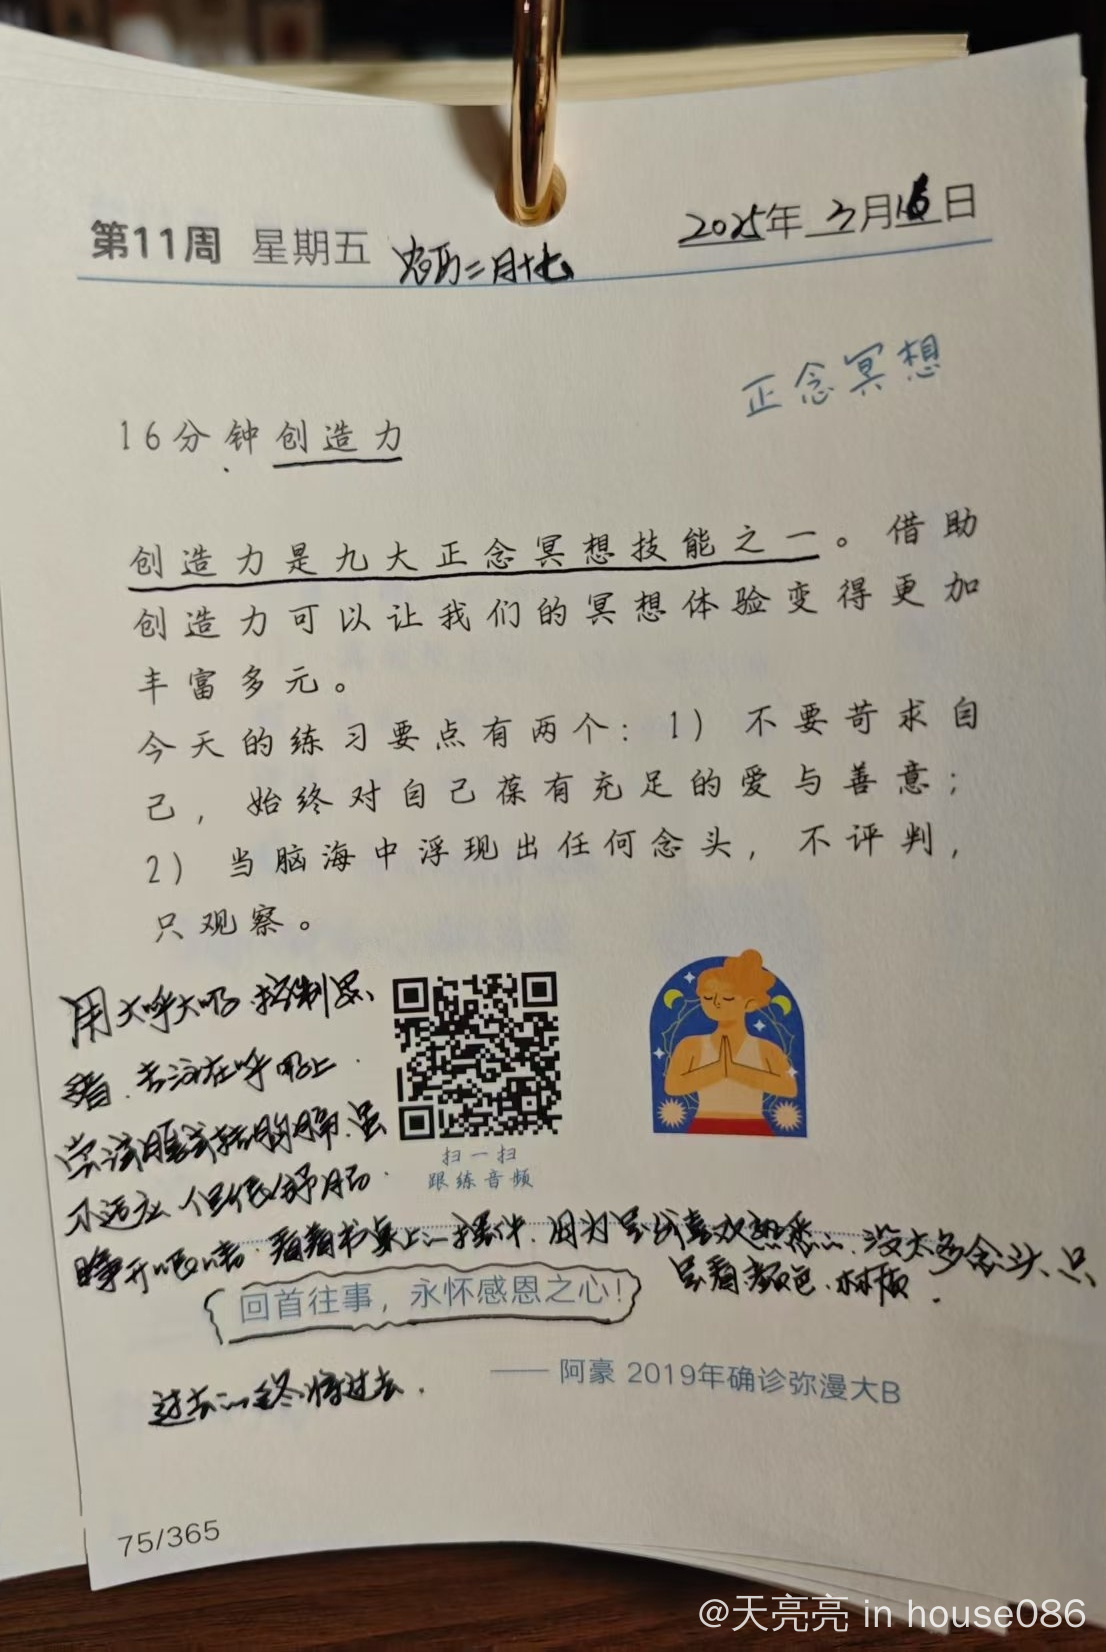 第11周 星期五 农历二月十七
2025年 3月16日
正念冥想
16分钟创造力
创造力是九大正念冥想技能之一。借助
创造力可以让我们的冥想体验变得更加
丰富多元。
今天的练习要点有两个：1）不要苛求自
己，始终对自己葆有充足的爱与善意；
2）当脑海中浮现出任何念头，不评判，
只观察。
用大呼大吸控制思
绪.专注在呼吸上
尝试腹式转胸肺.虽
不适应 但很舒服.
扫一扫
跟练音频
睁开眼睛.看着书桌上的摆件.因为是我喜欢熟悉的.没太多念头、只
是看.颜色.材质.
回首往事，永怀感恩之心！
—— 阿豪 2019年确诊弥漫大B
过去的终将过去.
75/365
@天亮亮 in house086